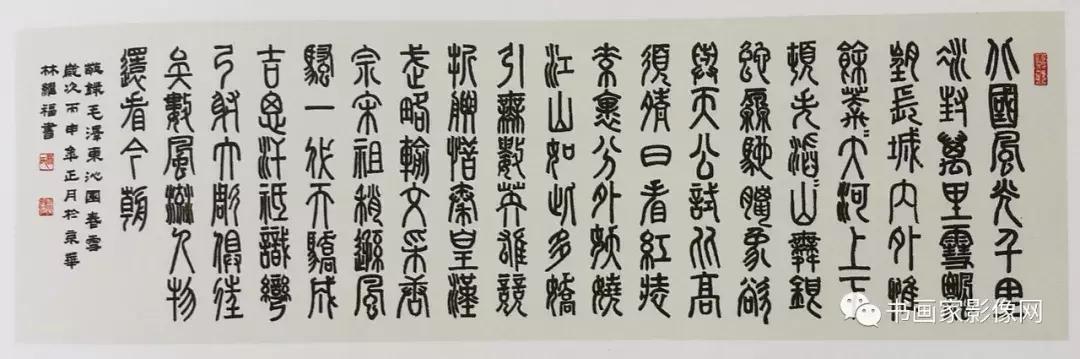 北國風光千里
冰封萬里雪飄
望長城內外惟
餘莽〻大河上下
頓失滔〻山舞銀
蛇原馳蠟象欲
與天公試比高
須晴日看紅裝
素裹分外妖嬈
江山如此多嬌
引無數英雄競
折腰惜秦皇漢
武略輸文采唐
宗宋祖稍遜風
騷一代天驕成
吉思汗祇識彎
弓射大雕俱往
矣數風流人物
還看今朝
錄毛澤東沁園春雪
歲次丙申年正月於京華
林福書
书画家影像网